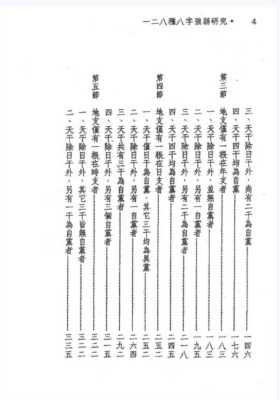 一二八種八字強弱研究 • 4
三、天干除日干外，尚有二干為自黨 一四六
四、天干四干均為自黨 一七六
第三節 地支僅有一根在年支者 一八三
一、天干除日干外，並無自黨者 一八三
二、天干除日干外，另有一自黨者 一九五
三、天干除日干外，另有二干自黨者 二一八
四、天干四干均為自黨者
第四節 地支僅有一根在日支者 二五二
一、天干僅日干為自黨，其它三干均為異黨 二五二
二、天干除日干外，另有一自黨者 二六四
三、天干共有三干為自黨者 二九二
四、天干除日干外，另有三個自黨者
第五節 地支僅有一根在時支者 三三一
一、天干除日干外，其它三干皆無自黨者 三三一
二、天干除日干外，另有一干為自黨者 三三五